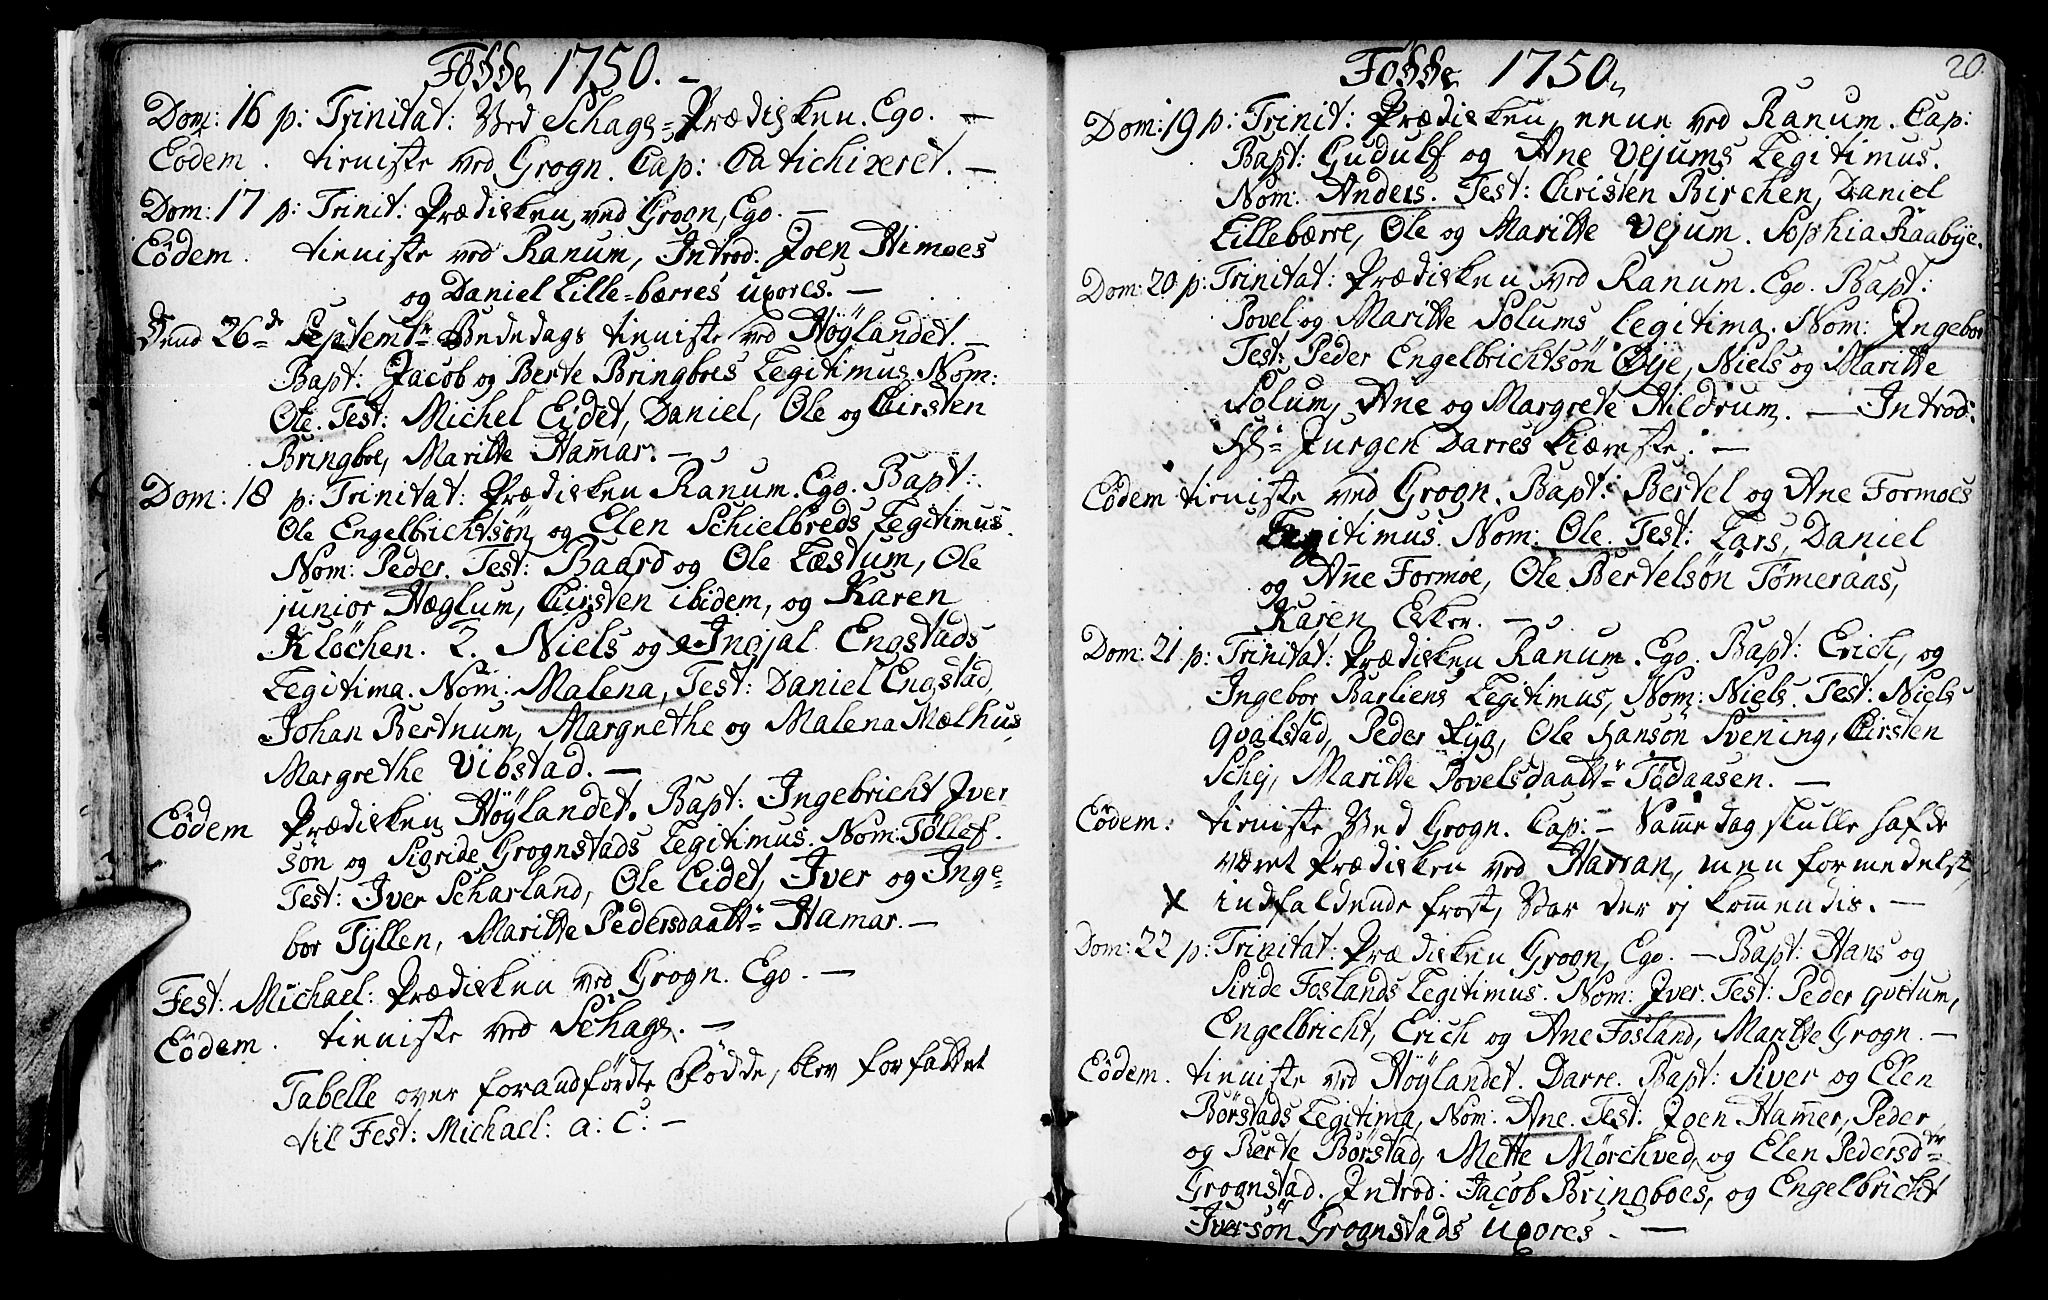 Fødde 1750. –
Dom: 16 p: Trinitat: Ved Schage=Prædiken. Ego. –
Eôdem. tieniste ved Grogn. Cap: Catichizeret. –
Dom: 17 p: Trinit: Prædiken ved Grogn, Ego. –
Eôdem. tieniste ved Ranum, Introd: Joen Himoes
og Daniel Lille=bærres uxores. –
Dend 26de Septembr Bededags tieniste ved Höylandet. –
Bapt: Jacob og Berte Bringboes Legitimus. Nom:
Ole. Test: Michel Eidet, Daniel, Ole og Kirsten
Bringboe, Maritte Ham̄ar. –
Dom: 18 p: Trinitat: Prædiken Ranum. Ego. Bapt:
Ole Engelbrichtsøn og Elen Schielbreds Legitimus.
Nom: Peder. Test: Baard og Ole Læstum, Ole
junior Hæglum, Kirsten ibidem, og Karen
Kløchen. 2. Niels og Ingjal Engstads
Legitima. Nom: Malena, Test: Daniel Engstad,
Johan Bertnum, Margrethe og Malena Mælhus,
Margrethe Vibstad. –
Eôdem Prædiken Höylandet. Bapt: Ingebricht Iver
søn og Sigride Grognstads Legitimus. Nom: Tøllef.
Test: Iver Scharland, Ole Eidet, Iver og Inge=
bor Tÿllen, Maritte Pedersdaattr Hamar. –
Fest: Michael: Prædiken ved Grogn. Ego. –
Eôdem. tieniste ved Schage. –
Tabelle over foranførdte Fødde, blev forfattet
til Fest: Michael: a: C: –
Fødde 1750.
20.
Dom: 19 p: Trinit: Prædiken, nene ved Ranum. Cap:
Bapt: Gudulf og Ane Vejums Legitimus.
Nom: Anders. Test: Christen Birchen, Daniel
Lillebærre, Ole og Maritte Vejum. Sophia Raabÿe.
Dom: 20 p: Trinitat: Prædiken ved Ranum. Ego. Bapt:
Povel og Maritte Solums Legitima. Nom: Ingebor
Test: Peder Engelbrichtsøn Øÿe, Niels og Maritte
Solum, Ane og Margrete Hildrum. – Introd:
Hr Jurgen Darres kiæreste. –
Eôdem tieniste ved Grogn. Bapt: Bertel og Ane Formoes
Legitimus. Nom: Ole. Test: Lars, Daniel
og An̄e Formoe, Ole Bertelsøn Tømeraas,
Karen Eker. –
Dom: 21 p: Trinitat: Prædiken Ranum. Ego. Bapt: Erich, og
Ingebor Barliens Legitimus, Nom: Niels. Test: Niels
Qvalstad, Peder Lÿg, Ole Hansøn Svening, Kirsten
Schej, Maritte Povelsdaattr Tødaasen. –
Eôdem: tieniste Ved Grogn. Cap: – Sam̄e dag skulle hafde
været Prædiken ved Harran, men formedelst
indfaldende frost, Var der ej kom̄endis. –
Dom: 22 p: Trinitat: Prædiken Grogn, Ego. – Bapt: Hans og
Siride Foslands Legitimus. Nom: Iver. Test: Peder Qvetum,
Engelbricht, Erich og Ane Fosland, Maritte Grogn. –
Eôdem. tieniste ved Höylandet. Darre. Bapt: Siver og Elen
Børstads Legitima, Nom: Ane. Test: Joen Ham̄er, Peder
og Berte Børstad, Mette Mørchved, og Elen Pedersdtr
Grognstad. Introd: Jacob Bringboes, og Engelbricht
Iversøn Grognstads uxores. –